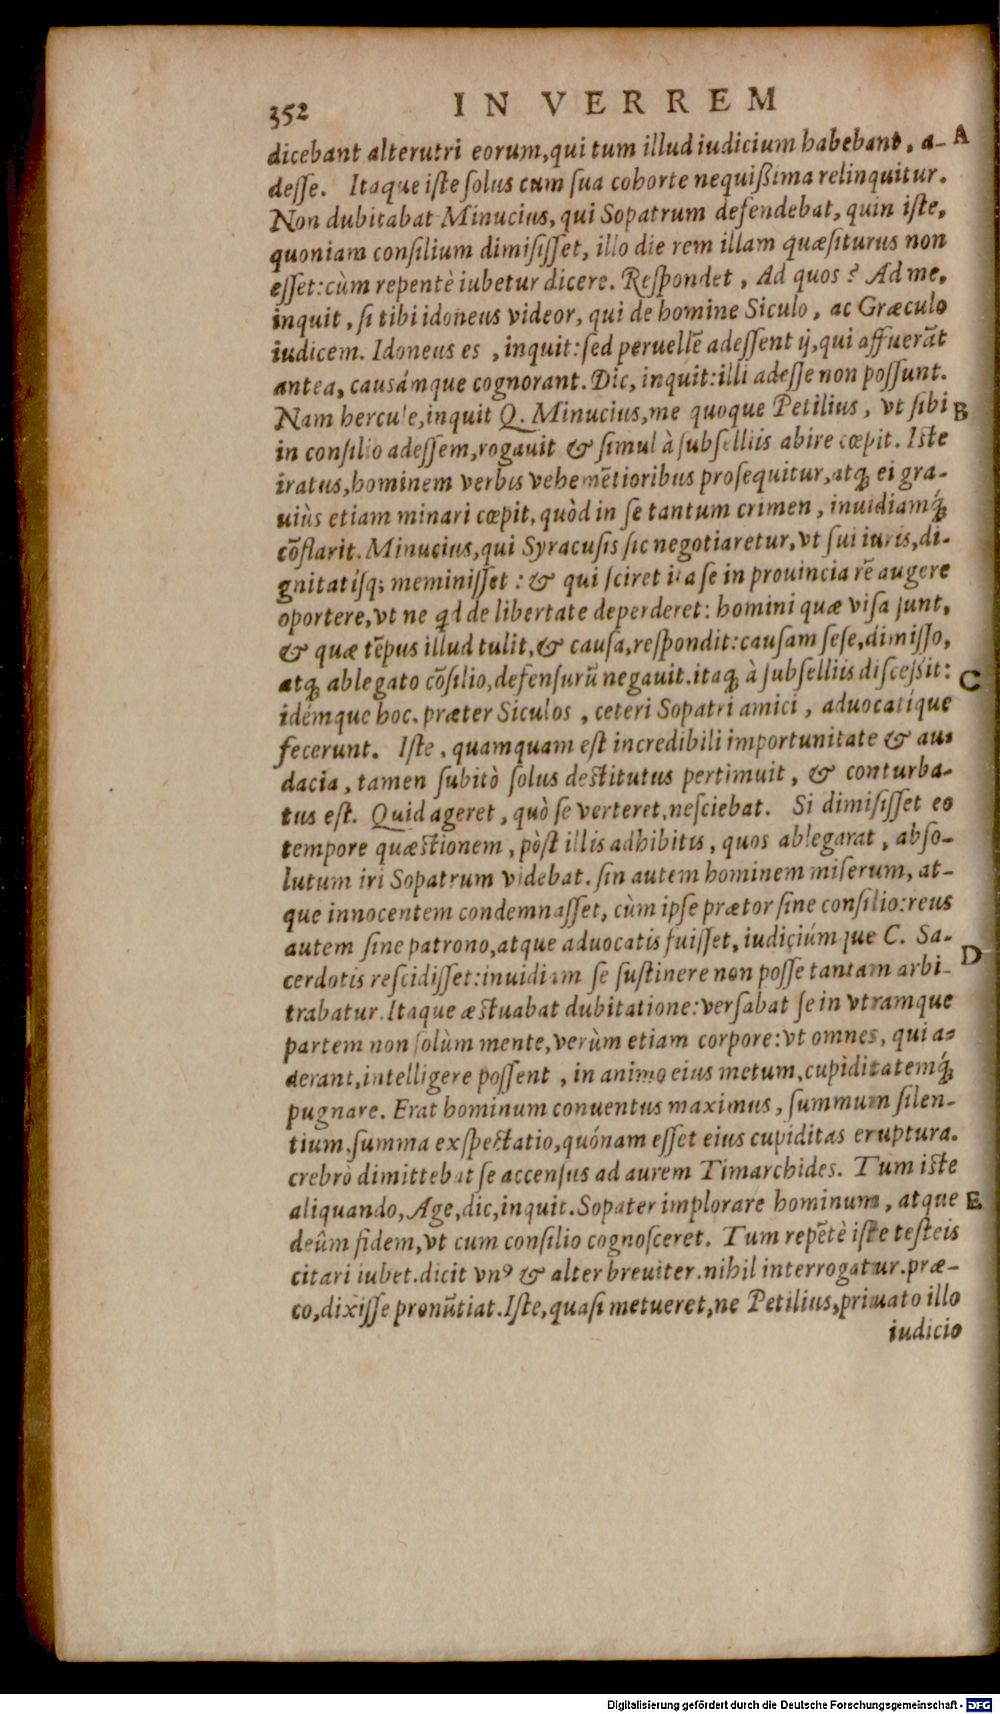 352 IN VERREM
dicebant alterutri eorum,qui tum illud iudicium habebant, a- A
deſſe. Itaque iſte ſolus cum ſua cohorte nequiſsima relinquitur.
Non dubitabat Minucius, qui Sopatrum defendebat, quin iſte,
quoniam conſilium dimiſiſſet, illo die rem illam quæſiturus non
eſſet:cùm repentè iubetur dicere. Reſpondet, Ad quos? Ad me,
inquit, ſi tibi idoneus videor, qui de homine Siculo, ac Græculo
iudicem. Idoneus es, inquit:ſed peruellē adeſſent ij, qui affuerāt
antea, cauſámque cognorant. Dic, inquit:illi adeſſe non poſſunt.
Nam hercule, inquit Q. Minucius, me quoque Petilius, vt ſibi B
in conſilio adeſſem, rogauit & ſimul à ſubſelliis abire cœpit. Iſte
iratus, hominem verbis vehemētioribus proſequitur, atq; ei gra-
uiùs etiam minari cœpit, quòd in ſe tantum crimen, inuidiamq́;
cōflarit. Minucius, qui Syracuſis ſic negotiaretur, vt ſui iuris, di-
gnitatíſq; meminiſſet: & qui ſciret ita ſe in prouincia rē augere
oportere, vt ne qd de libertate deperderet: homini quæ viſa ſunt,
& quæ tēpus illud tulit, & cauſa, reſpondit:cauſam ſeſe, dimiſſo,
atq; ablegato cōſilio, defenſurū negauit. itaq; à ſubſelliis diſceſsit: C
idémque hoc. præter Siculos, ceteri Sopatri amici, aduocatíque
fecerunt. Iſte, quamquam eſt incredibili importunitate & au-
dacia, tamen ſubitò ſolus deſtitutus pertimuit, & conturba-
tus eſt. Quid ageret, quò ſe verteret, neſciebat. Si dimiſiſſet eo
tempore quæſtionem, pòſt illis adhibitis, quos ablegarat, abſo-
lutum iri Sopatrum videbat. ſin autem hominem miſerum, at-
que innocentem condemnaſſet, cùm ipſe prætor ſine conſilio:reus
autem ſine patrono, atque aduocatis fuiſſet, iudiciúmque C. Sa-
cerdotis reſcidiſſet:inuidiam ſe ſuſtinere non poſſe tantam arbi- D
trabatur. Itaque æſtuabat dubitatione:verſabat ſe in vtramque
partem non ſolùm mente, verùm etiam corpore:vt omnes, qui a-
derant, intelligere poſſent, in animo eius metum, cupiditatemq́;
pugnare. Erat hominum conuentus maximus, ſummum ſilen-
tium, ſumma exſpectatio, quónam eſſet eius cupiditas eruptura.
crebrò dimittebat ſe accenſus ad aurem Timarchides. Tum iſte
aliquando, Age, dic, inquit. Sopater implorare hominum, atque E
deûm fidem, vt cum conſilio cognoſceret. Tum repētè iſte teſteis
citari iubet. dicit vnꝰ & alter breuiter. nihil interrogatur. præ-
co, dixiſſe pronūtiat. Iſte, quaſi metueret, ne Petilius, priuato illo
iudicio
Digitalisierung gefördert durch die Deutsche Forschungsgemeinschaft - DFG